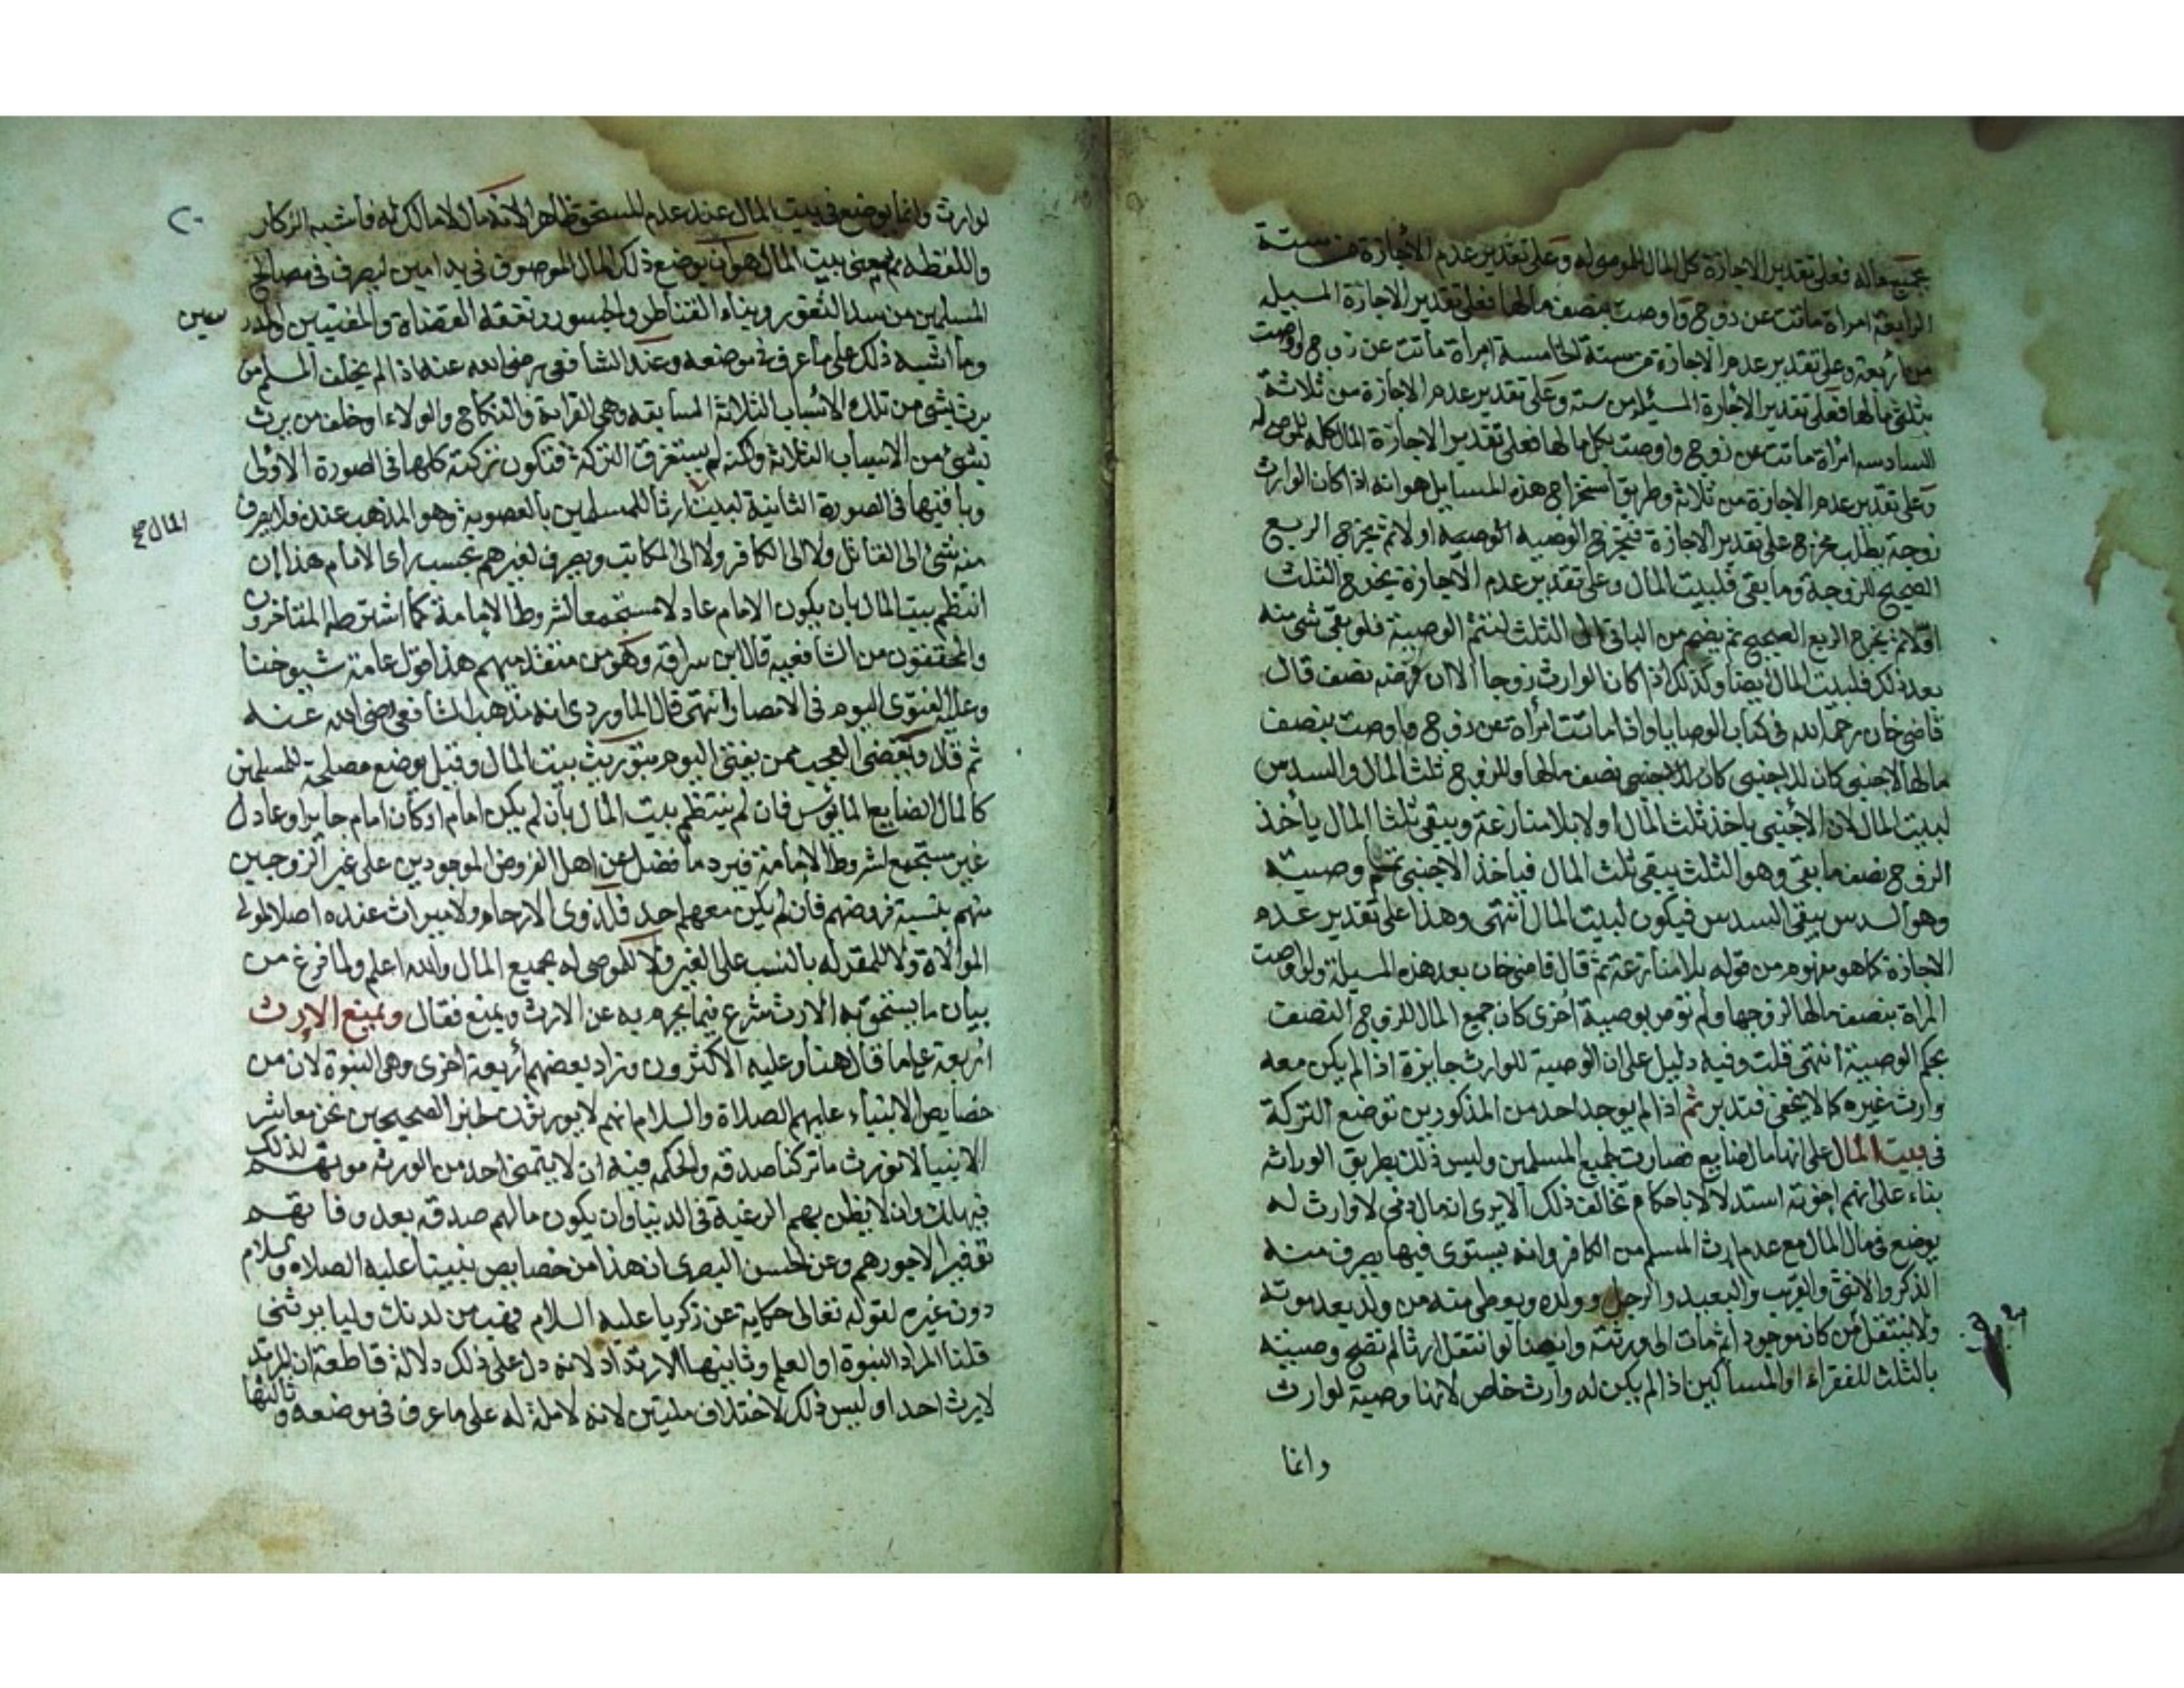 بجميع ماله فعلى تقدير الاجازة كل المال للموصى له وعلى تقدير عدم الاجازة من ستة
الرابعة امراة ماتت عن زوج واوصت بنصف مالها فعلى تقدير الاجازة المسيلة
من اربعة وعلى تقدير عدم الاجازة من ستة الخامسة امراة ماتت عن زوج واوصت
بثلثي مالها فعلى تقدير الاجازة المسيلة من ستة وعلى تقدير عدم الاجازة من ثلاثة
السادسه امراة ماتت عن زوج واوصت بكل مالها فعلى تقدير الاجازة المال كله للموصى له
وعلى تقدير عدم الاجازة من ثلاثة وطريق استخراج هذه المسايل هو انه اذا كان الوارث
زوجة يطلب مخرج على تقدير الاجازة فيخرج الوصية الوصية اولا ثم يخرج الربع
الصحيح للزوجة وما بقي فلبيت المال وعلى تقدير عدم الاجازة يخرج الثلث
اولا ثم يخرج الربع الصحيح ثم يضم من الباقي الى الثلث لتتم الوصية فلو بقي شي منه
بعد ذلك فلبيت المال ايضا وكذلك اذا كان الوارث زوجا الا ان فرضه نصف قال
قاضي خان رحمه الله في كتاب الوصايا واذا ماتت امراة عن زوج واوصت بنصف
مالها لاجنبي كان للاجنبي نصف مالها وللزوج ثلث المال والسدس
لبيت المال لان الاجنبي ياخذ ثلث المال اولا بلا منازعة ويبقى ثلثا المال ياخذ
الزوج نصف ما بقي وهو الثلث يبقى ثلث المال فياخذ الاجنبي تمام وصيته
وهو السدس يبقى السدس فيكون لبيت المال انتهى وهذا على تقدير عدم
الاجازة كما هو مفهوم من قوله بلا منازعة ثم قال قاضي خان بعد هذه المسيلة ولو اوصت
المراة بنصف مالها لزوجها ولم توص بوصية اخرى كان جميع المال للزوج النصف
بحكم الوصية انتهى قلت وفيه دليل على ان الوصية للوارث جايزة اذا لم يكن معه
وارث غيره كما لا يخفى فتدبر ثم اذا لم يوجد احد من المذكورين توضع التركة
في بيت المال على انها مال ضايع فصارت لجميع المسلمين وليس ذلك بطريق الوراثه
بناء على انهم اخوته استدلالا باحكام تخالف ذلك الا يرى ان مال ذمي لا وارث له
يوضع في مال المال مع عدم ارث المسلم من الكافر وانه يستوى فيها يصرف منه
الذكر والانثى والقريب والبعيد والرجل وولده ويعطى منه من ولد بعد موته
ولا ينتقل من كان موجود اثم مات الى ورثته وايضا لو انتقل ارثا لم تصح وصيته
بالثلث للفقراء او المساكين اذا لم يكن له وارث خاص لانها وصية لوارث
وانما
لوارث وانما يوضع في بيت المال عند عدم المستحق ظاهرا لانه مال لا مالك له فاشبه الركاز
واللقطه ثم معنى بيت المال هو ان يوضع ذلك المال الموصوف في يد امين ليصرف في مصالح
المسلمين من سد الثغور وبناء القناطر والجسور ونفقة القضاة والمفتيين
وما اشبه ذلك على ما عرف في موضعه وعند الشافعي رضى الله عنه اذا لم يخلف المسلم من
يرث بشي من تلك الاسباب الثلاثة السابقه وهي القرابة والنكاح والولاء او خلف من يرث
بشي من الاسباب الثلاثة ولكنه لم يستغرق التركة فتكون تركته كلها في الصورة الاولى
وبا فيها في الصورة الثانية لبيت ارثا للمسلمين بالعصوبة وهو المذهب عنده فلا يصرف
المال صح
منه شي الى القاتل ولا الى الكافر ولا الى المكاتب ويصرف لغيرهم بحسب راى الامام هذا ان
انتظم بيت المال بان يكون الامام عادلا مستجمعا لشروط الامامة كما اشترطه المتاخرون
والمحققون من الشافعيه قال ابن سراقه وهو من متقدميهم هذا قول عامة شيوخنا
وعليه الفتوى اليوم في الامصار انتهى قال الماوردي انه مذهب الشافعي رضى الله عنه
ثم قال واقضى العجب ممن يفتى اليوم بتوريث بيت المال وقيل يوضع مصلحة للمسلمين
كالمال الضايع المايوس فان لم ينتظم بيت المال بان لم يكن امام او كان امام جايرا وعادل
غير مستجمع لشروط الامامة فيرد ما فضل عن اهل الفروض الموجودين على غير الزوجين
منهم بنسبة فروضهم فان لم يكن معهم احد فلذوى الارحام ولا ميراث عنده اصلا لمولى
الموالاة ولا للمقر له بالنسب على الغير ولا للموصى له بجميع المال والله اعلم ولما فرغ من
بيان ما يستحق به الارث شرع فيما يحرم به عن الارث ويمنع فقال ويمنع الارث
اربعة على ما قال هنا وعليه الاكثرون وزاد بعضهم اربعة اخرى وهي النبوة لان من
خصايص الانبياء عليهم الصلاة والسلام انهم لا يورثون لخبر الصحيحين نحن معاشر
الانبيا لا نورث ما تركنا صدقه والحكمه فيه ان لا يتمنى احد من الورثه موتهم لذلك
فيهلك وان لا يظن بهم الرغبة في الدنيا وان يكون مالهم صدقه بعد وفاتهم
توفيرا لاجورهم وعن الحسن البصرى ان هذا من خصايص نبينا عليه الصلاه والسلام
دون غيره لقوله تعالى حكاية عن زكريا عليه السلام فهب من لدنك وليا يرثني
قلنا المراد النبوة او العلم وثانيها الارتداد لانه دل على ذلك دلالة قاطعة ان المرتد
لا يرث احدا وليس ذلك لاختلاف ملتين لانه لا ملة له على ما عرف في موضعه وثالثها